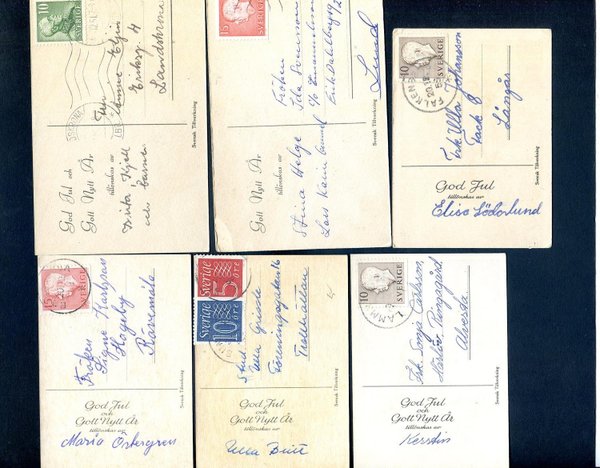 10
SVERIGE
Annie Elgin
Eriksg. 4
Landskrona
God Jul och
Gott Nytt År
tillönskas av
Brita Kjell
och barnen
Svensk Tillverkning
15
SVERIGE
Fröken
Ida Svensson
c/o Zimmerman
Lund
Gott Nytt År
tillönskas av
Stina Helge
Lars Karin
Svensk Tillverkning
10
SVERIGE
FALKENB
Frk. Ulla Johansson
Fack 8
Långås
God Jul
tillönskas av
Elisa Söderlund
Svensk Tillverkning
15
SVERIGE
Fröken
Signe Karlsson
Hageby
Ravemåla
God Jul
och
Gott Nytt År
tillönskas av
Maria Östergren
Svensk Tillverkning
Sverige
5 ÖRE
Sverige
10 ÖRE
Stud
Ulla
Föreningsgatan 16
Trollhättan
God Jul
och
Gott Nytt År
tillönskas av
Ulla Britt
Svensk Tillverkning
10
SVERIGE
Frk. Sonja Carlsson,
Prinsgård,
Alvesta.
God Jul
och
Gott Nytt År
tillönskas av
Kerstin
Svensk Tillverkning